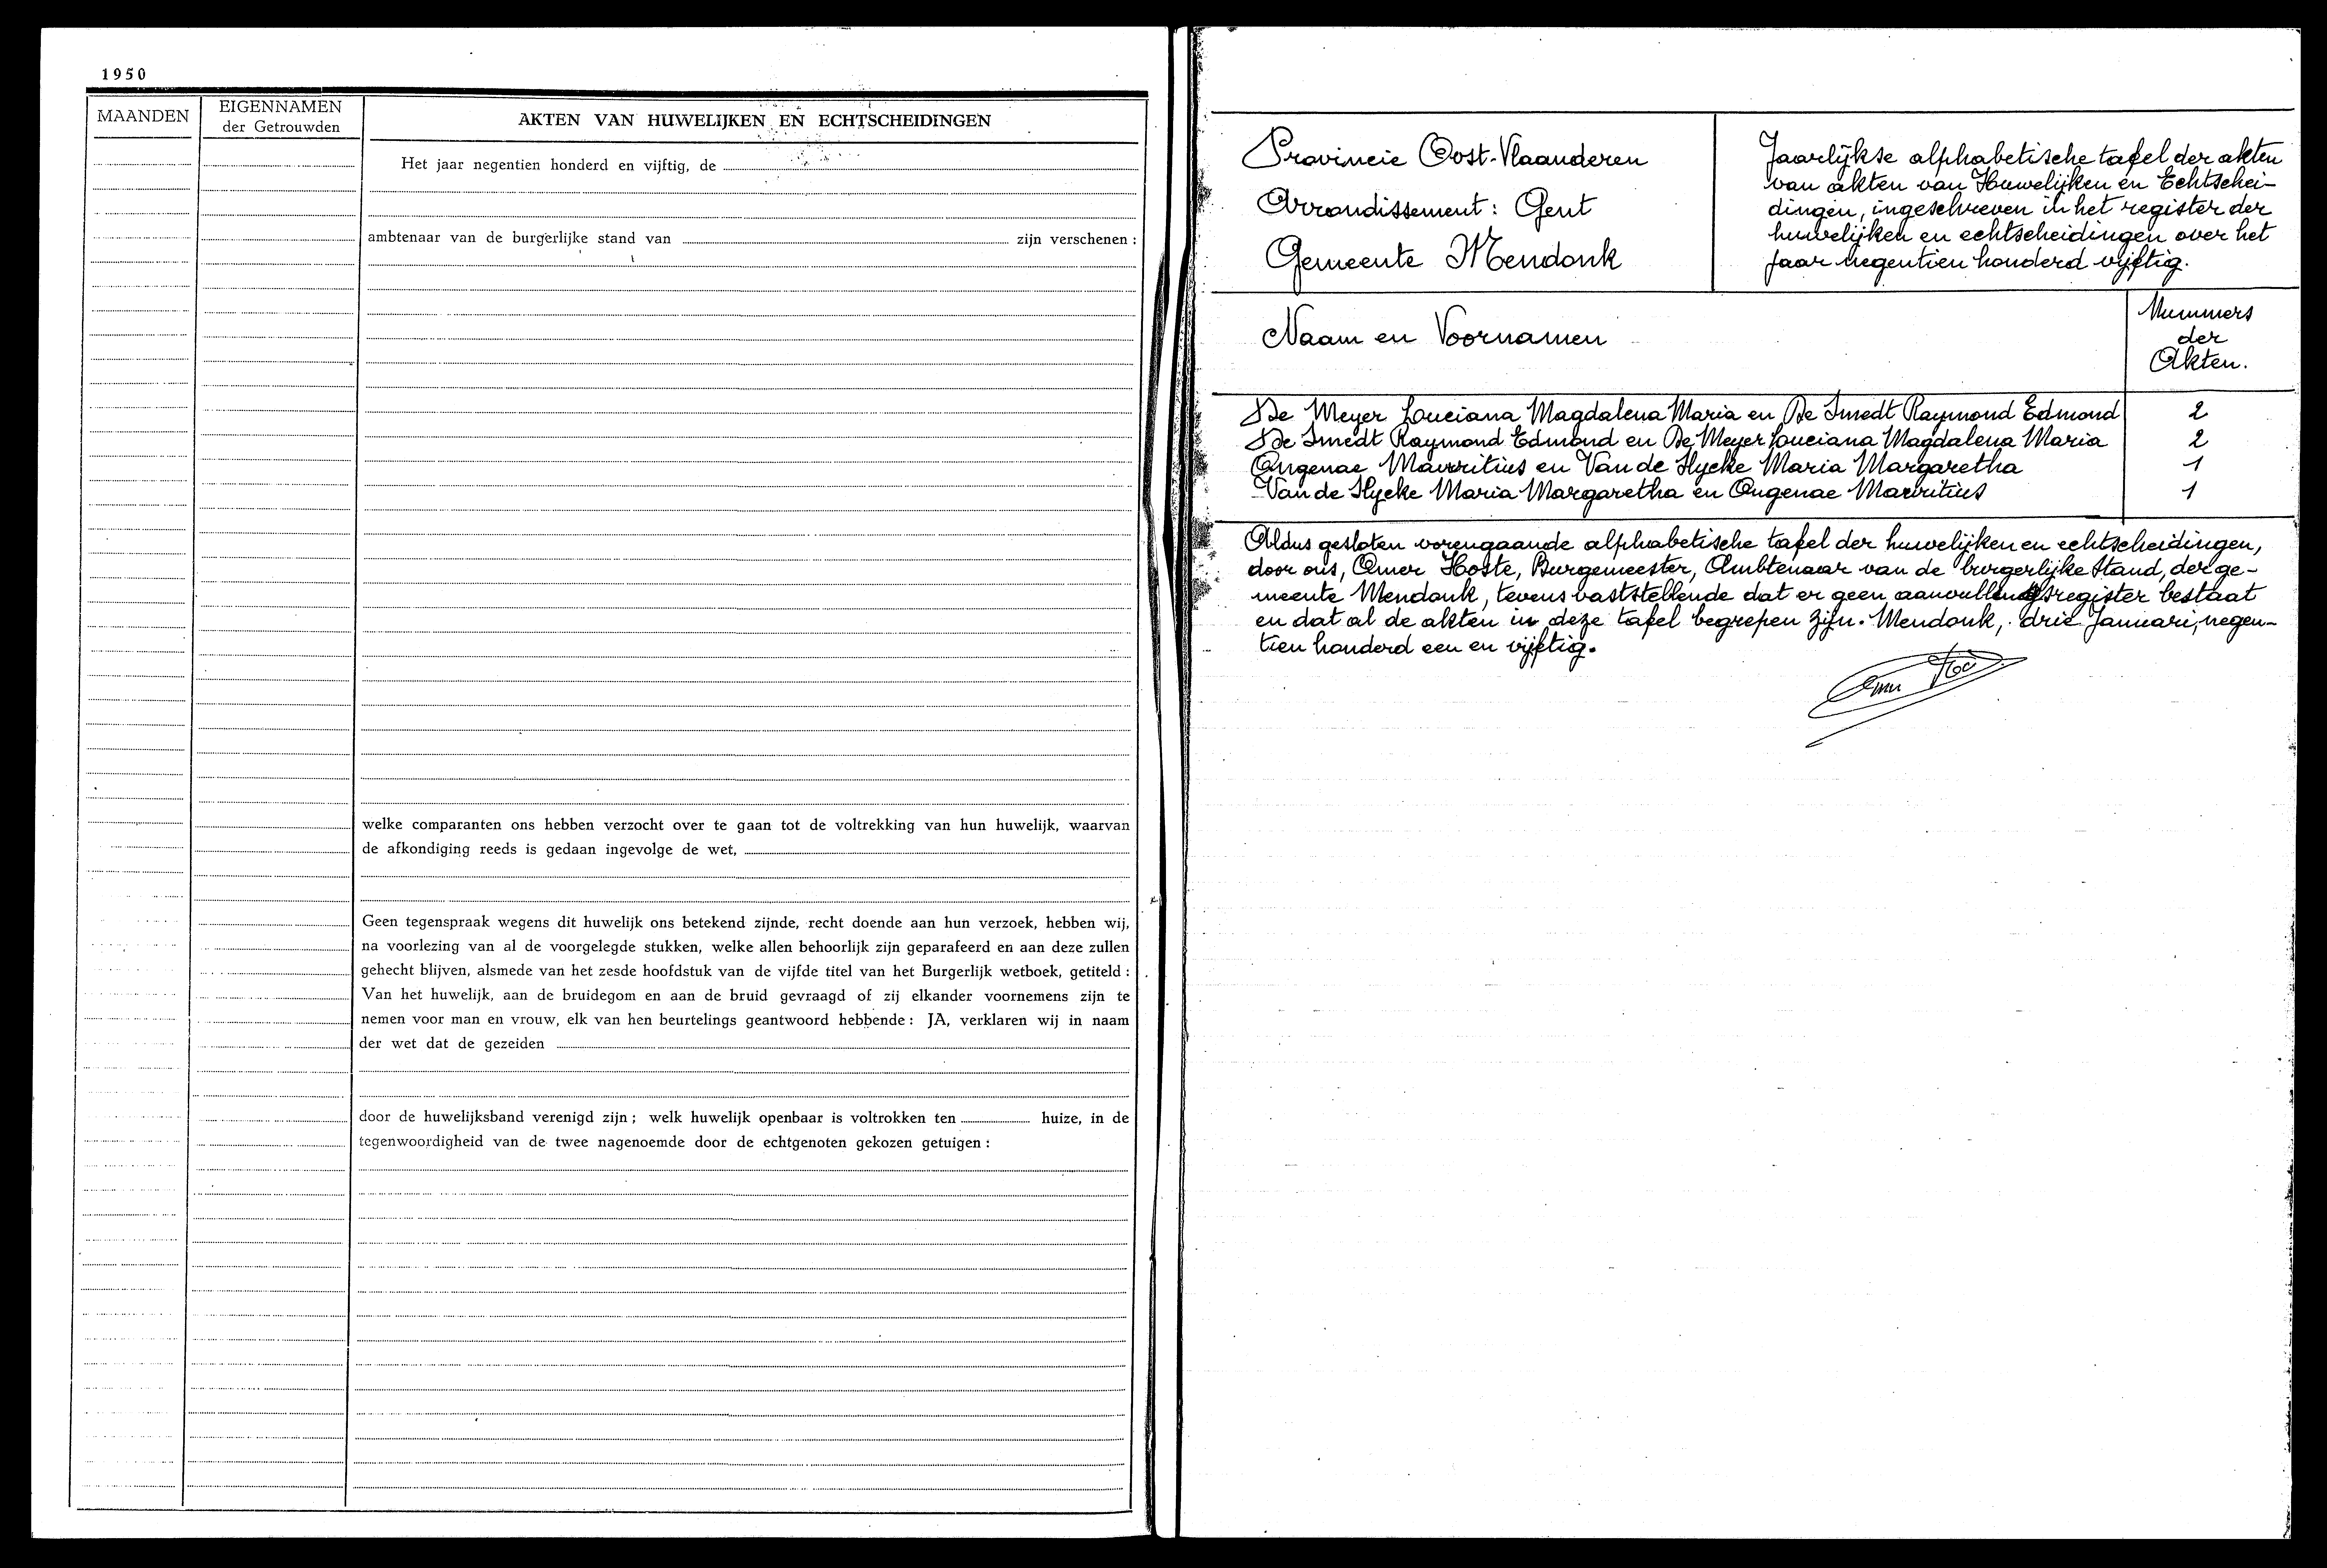 1950
MAANDEN
EIGENNAMEN
der Getrouwden
AKTEN VAN HUWELIJKEN EN ECHTSCHEIDINGEN
Het jaar negentien honderd en vijftig, de
ambtenaar van de burgerlijke stand van zijn verschenen :
welke comparanten ons hebben verzocht over te gaan tot de voltrekking van hun huwelijk, waarvan
de afkondiging reeds is gedaan ingevolge de wet,
Geen tegenspraak wegens dit huwelijk ons betekend zijnde, recht doende aan hun verzoek, hebben wij,
na voorlezing van al de voorgelegde stukken, welke allen behoorlijk zijn geparafeerd en aan deze zullen
gehecht blijven, alsmede van het zesde hoofdstuk van de vijfde titel van het Burgerlijk wetboek, getiteld :
Van het huwelijk, aan de bruidegom en aan de bruid gevraagd of zij elkander voornemens zijn te
nemen voor man en vrouw, elk van hen beurtelings geantwoord hebbende : JA, verklaren wij in naam
der wet dat de gezeiden
door de huwelijksband verenigd zijn ; welk huwelijk openbaar is voltrokken ten huize, in de
tegenwoordigheid van de twee nagenoemde door de echtgenoten gekozen getuigen :
Provincie Oost-Vlaanderen
Arrondissement : Gent
Gemeente Mendonk
Jaarlijkse alphabetische tafel der akten
van akten van Huwelijken en Echtschei-
dingen, ingeschreven in het register der
huwelijken en echtscheidingen over het
jaar negentien honderd vijftig.
Naam en Voornamen
Nummers
der
Akten.
De Meyer Louciana Magdalena Maria en De Smedt Raymond Edmond 2
De Smedt Raymond Edmond en De Meyer Louciana Magdalena Maria 2
Ongenae Mauritius en Van de Slycke Maria Margaretha 1
Van de Slycke Maria Margaretha en Ongenae Mauritius 1
Aldus gesloten vorengaande alphabetische tafel der huwelijken en echtscheidingen,
door ons, Omer Hoste, Burgemeester, Ambtenaar van de burgerlijke stand, der ge-
meente Mendonk, tevens vaststellende dat er geen aanvullingsregister bestaat
en dat al de akten in deze tafel begrepen zijn. Mendonk, drie Januari, negen-
tien honderd een en vijftig.